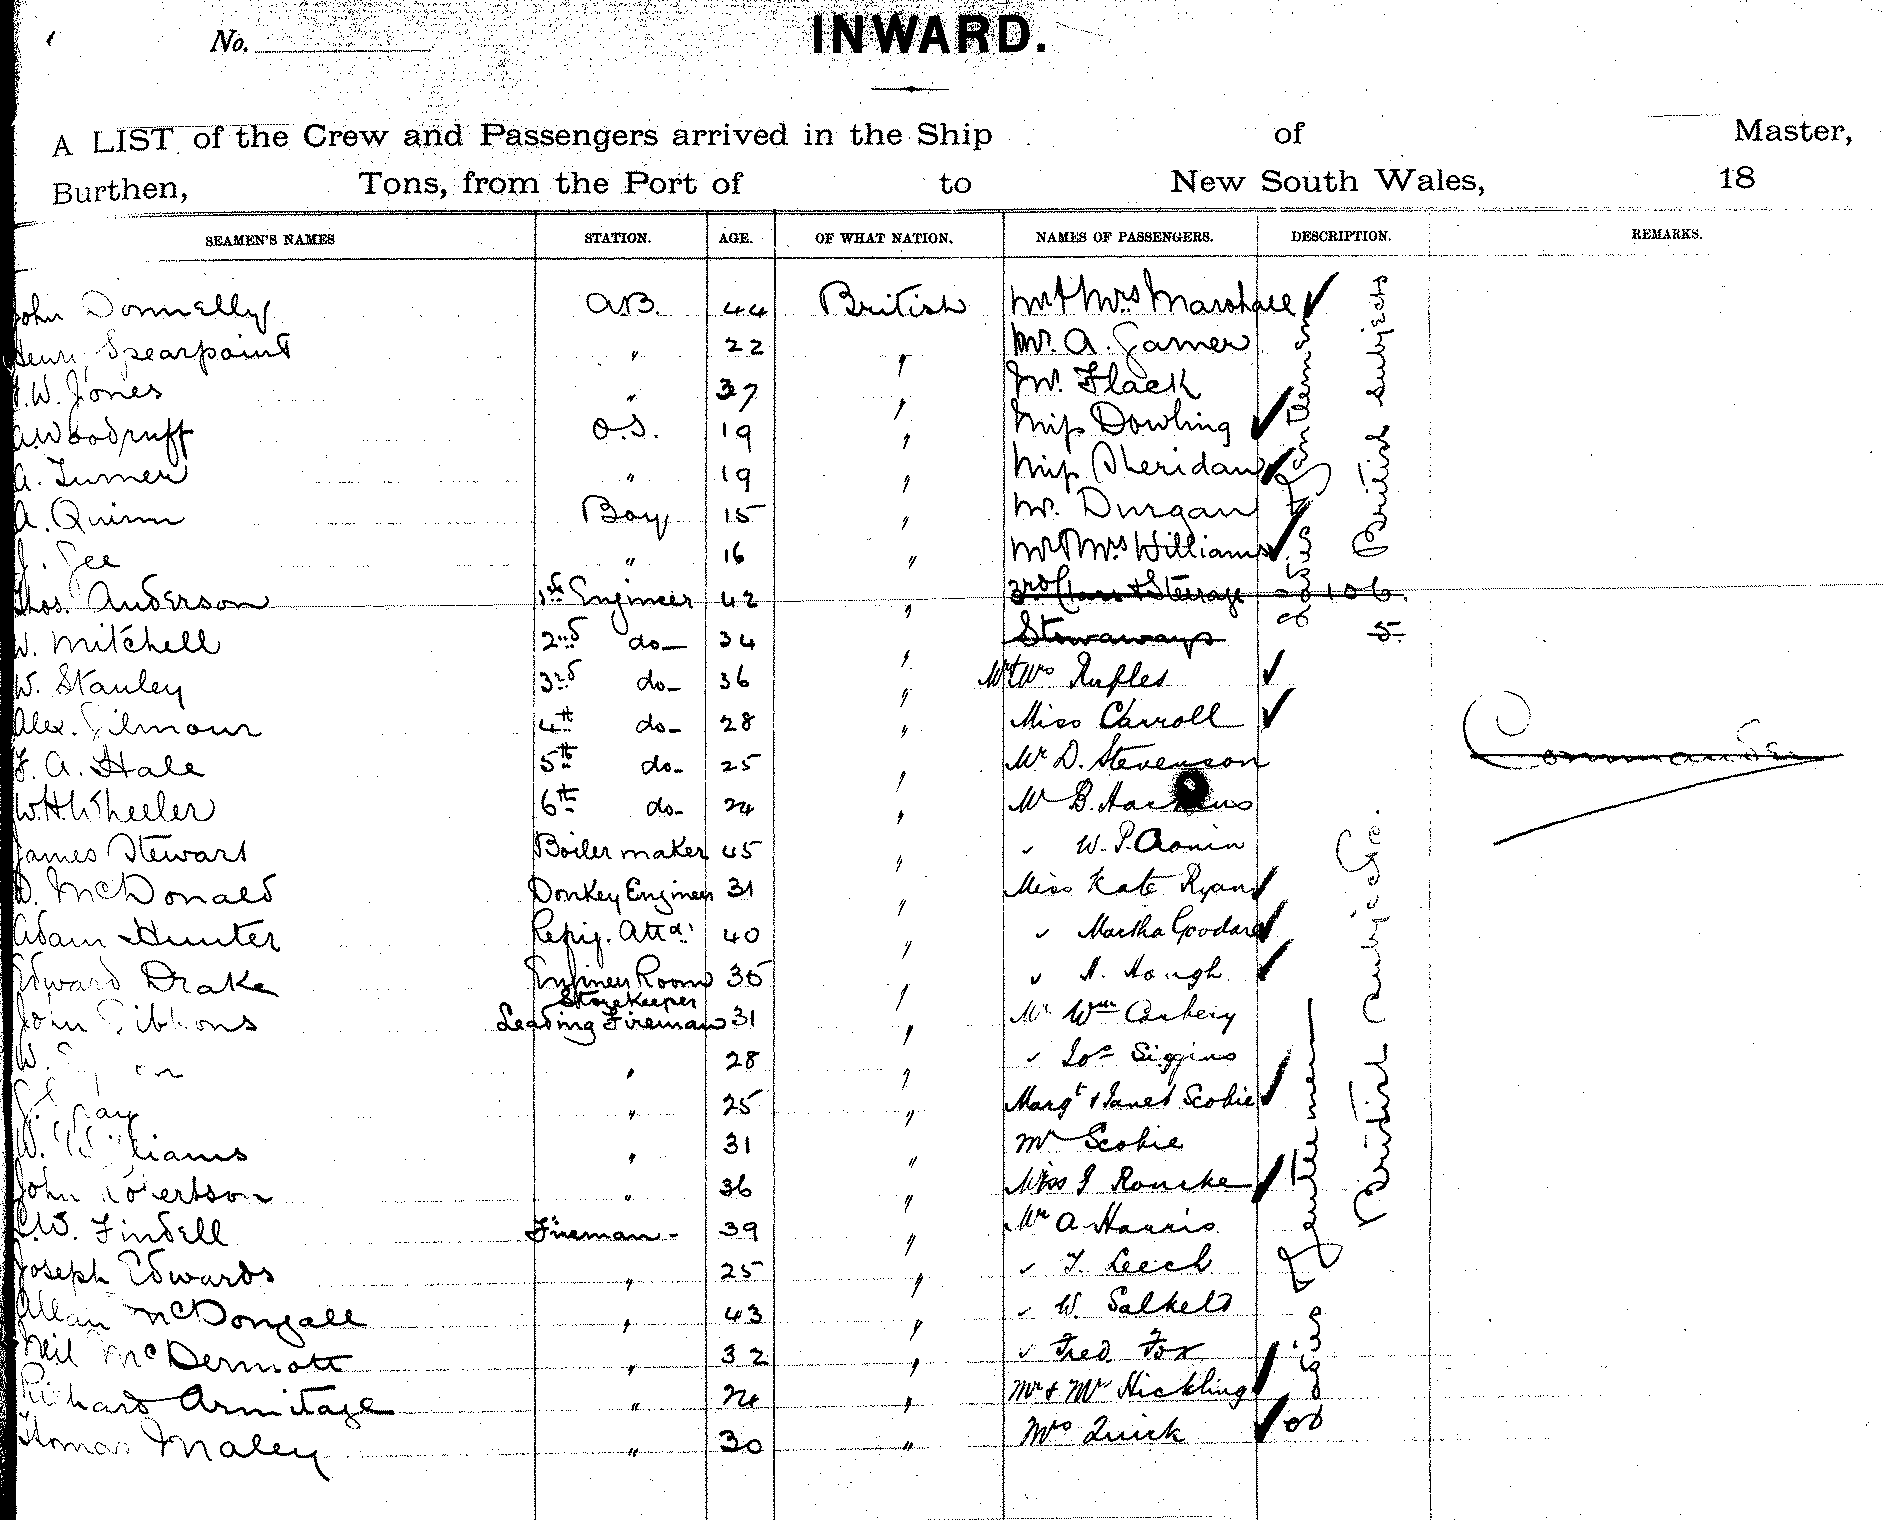 No.
INWARD.
A LIST of the Crew and Passengers arrived in the Ship of Master,
Burthen, Tons, from the Port of to New South Wales, 18
SEAMEN'S NAMES STATION. AGE. OF WHAT NATION. NAMES OF PASSENGERS. DESCRIPTION. REMARKS.
John Donnelly A.B. 44 British Mr & Mrs Marshall ✓
Henry Spearpoint " 22 " Mr. A. Garner
W. Jones " 37 " Mr. Flack
A Woodruff O.S. 19 " Miss Dowling ✓
A. Turner " 19 " Miss Sheridan ✓
A. Quinn Boy 15 " Mr. Durgan
J. Gee " 16 " Mr & Mrs Williams ✓
Thos. Anderson 1st Engineer 42 " 3rd Class & Steerage 106.
W. Mitchell 2nd do 34 " Stowaways 5
W. Stanley 3rd do 36 " Mr & Mrs ✓
Alex. Gilmour 4th do 28 " Miss Carroll ✓
F. A. Hale 5th do 25 " Mr D. Stevenson
W.H. Wheeler 6th do 24 " Mr B.
James Stewart Boilermaker 45 " " W. P. Cronin
D. McDonald Donkey Engineer 31 " Miss Kate Ryan ✓
Adam Hunter Refrig. Attd. 40 " " Martha Goodard ✓
Edward Drake Engineer Room Storekeeper 35 " " H. Hough ✓
John Gibbons Leading Fireman 31 " Mr Wm Carbery
W. " 28 " " Jos Siggins
" 25 " Margt & Janet Scobie ✓
W. Williams " 31 " Mr Scobie
John Robertson " 36 " Miss J Rourke ✓
W. Findell Fireman 39 " Mr A Harris
Joseph Edwards " 25 " " T. Leech
Allan McDougall " 43 " " W. Salkeld
Neil McDermott " 32 " " Fred Fox
Richard Armitage " 24 " Mr & Mrs Hickling ✓
Thomas Maley " 30 " Mrs Quick ✓
Ladies & Gentlemen
British Subjects
Commander
Ladies Gentlemen
British Subjects.